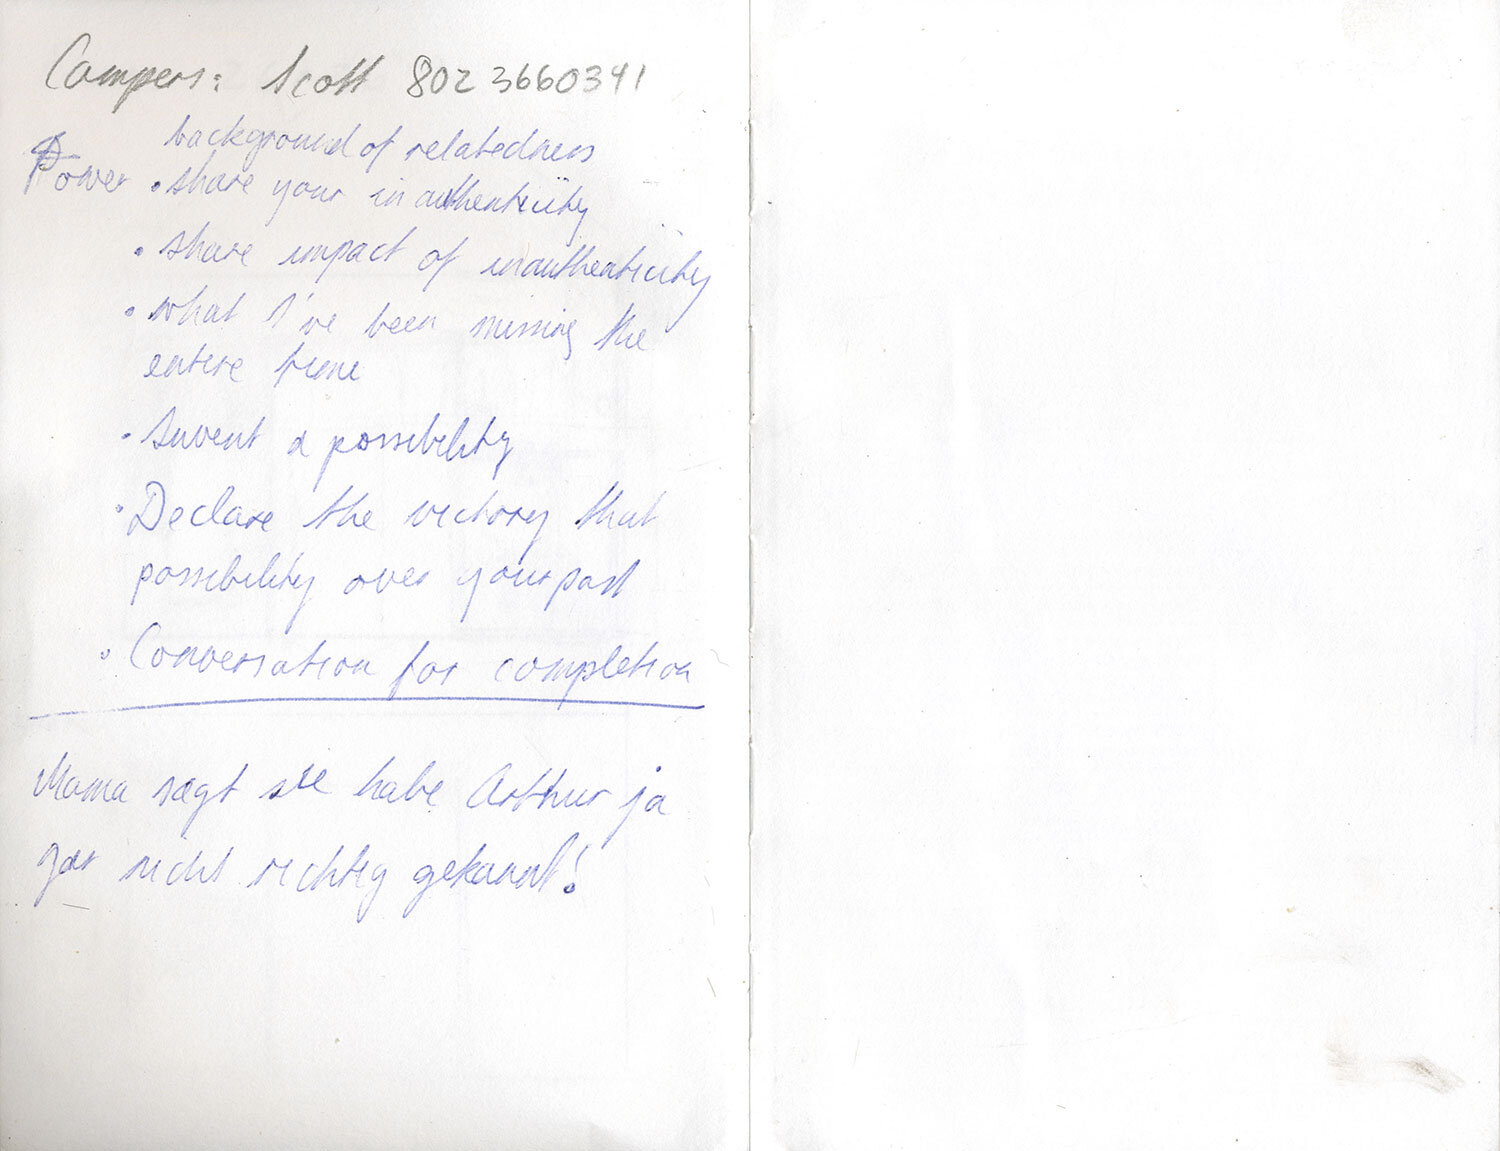 Campers: Scott 802 3660341
background of relatedness
Power • share your inauthenticity
• share impact of inauthenticity
• what I've been missing the
entire time
• Invent a possibility
• Declare the victory that
possibility over your past
• Conversation for completion
Mama sagt sie habe Arthur ja
gar nicht richtig gekannt!